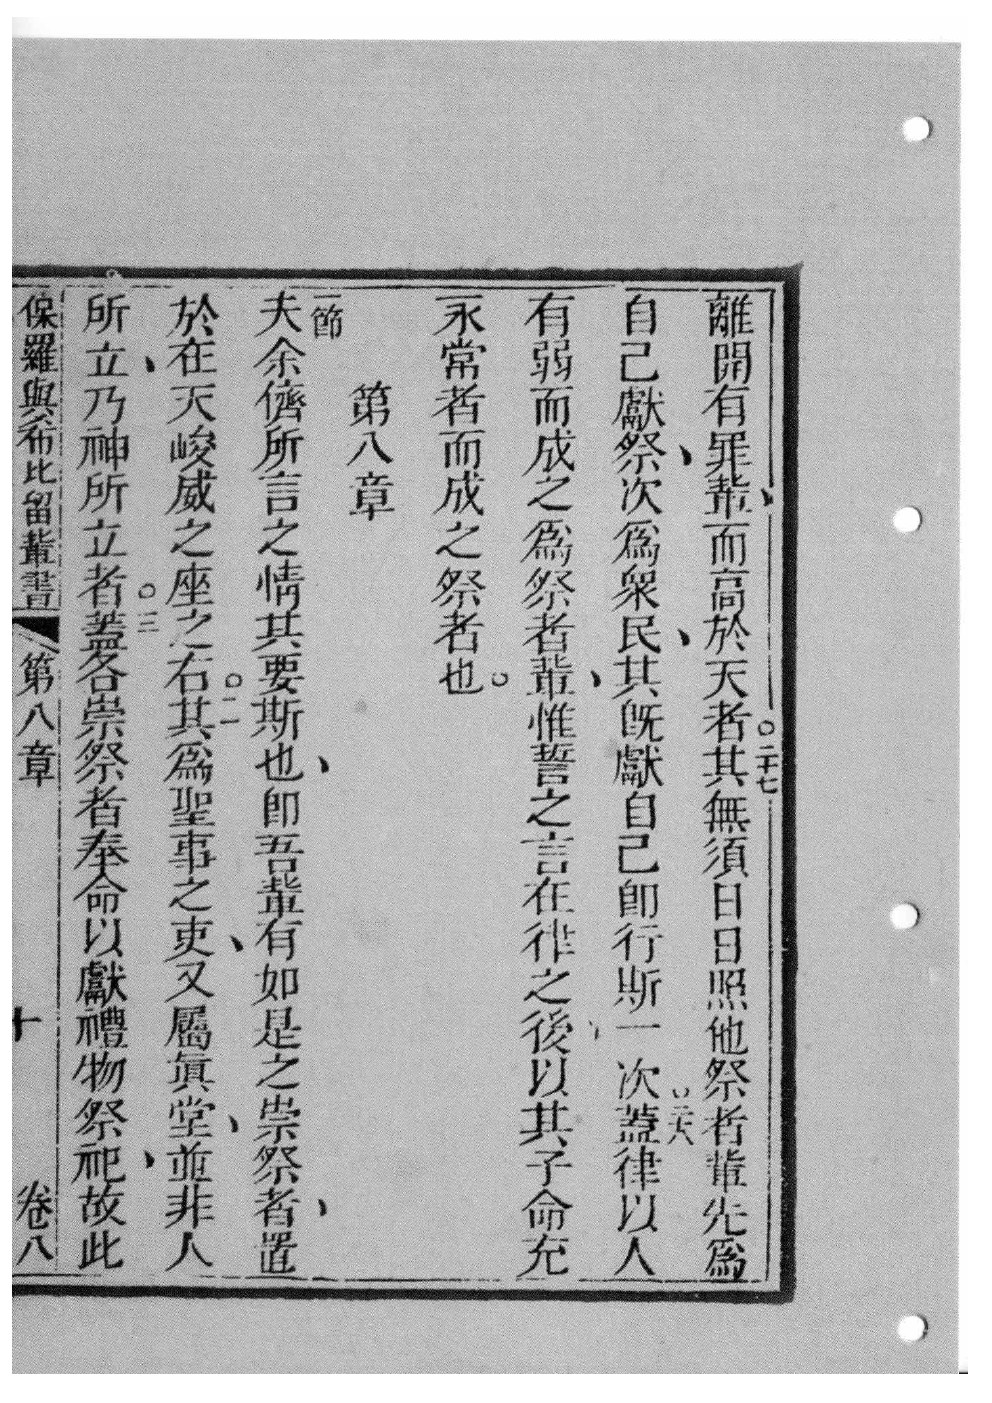 離開有罪輩、而高於天者。二十七其無須日日照他祭者輩先爲
自己獻祭、次爲衆民、其既獻自己卽行斯一次。二十八蓋律以人
有弱而成之爲祭者輩、惟誓之言在律之後、以其子命充
永常者而成之祭者也。
第八章
一節夫余儕所言之情其要斯也、卽吾輩有如是之崇祭者、置
於在天峻威之座之右。二其爲聖事之吏、又屬眞堂、並非人
所立、乃神所立者。三蓋各崇祭者奉命以獻禮物祭祀、故此
保羅與希比留輩書 第八章 十 卷八